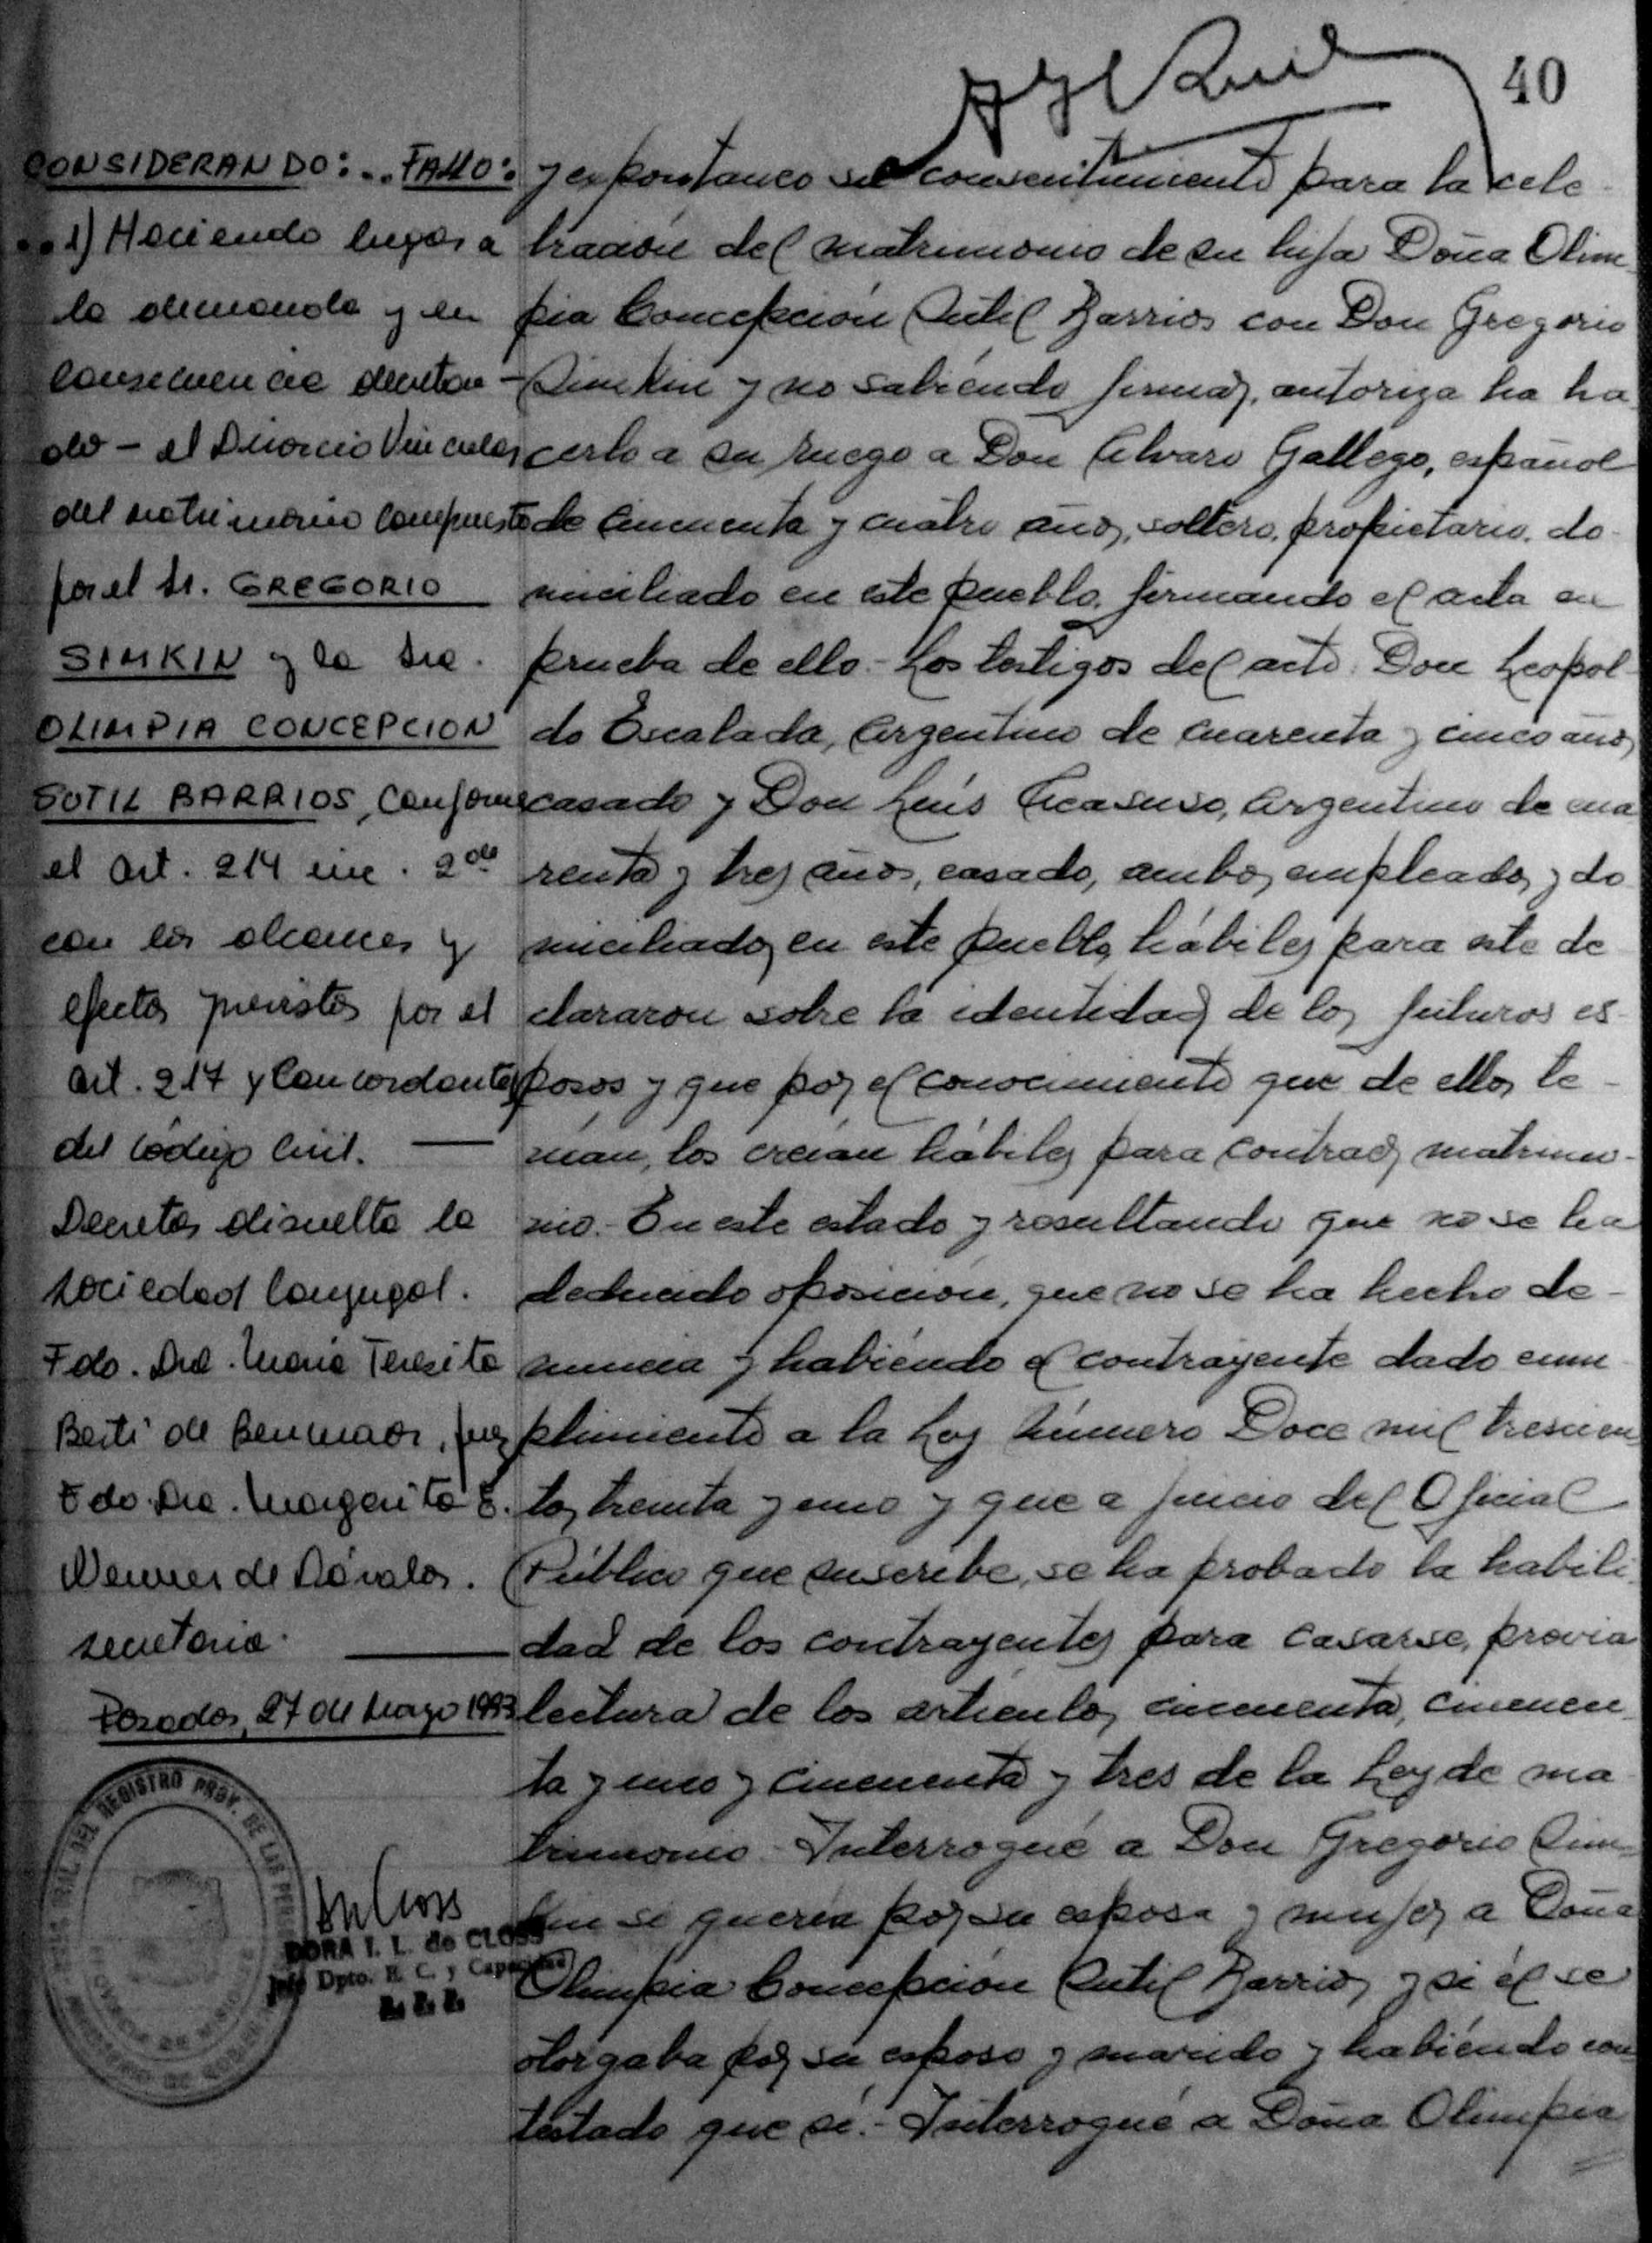 40
CONSIDERANDO: .. FALLO:
.. 1) Haciendo lugar a
la demanda y en
consecuencia decretan-
do - el Divorcio Vincular
del matrimonio compuesto
por el Sr. GREGORIO
SIMKIN y la Sra.
OLIMPIA CONCEPCION
SOTIL BARRIOS, conforme
el Art. 214 inc. 2do
con los alcances y
efectos previstos por el
Art. 217 y Concordantes
del Código Civil.
Decretar disuelta la
sociedad Conyugal.
Fdo. Dra. María Teresita
de juez
Fdo. Dra. Margarita E.
de Dávalos.
secretaria.
Posadas, 27 de Mayo 1993
REGISTRO PROV. DE LAS
DORA I. L. de CLOSS
Jefe Dpto. E. C. y Capacidad
y expontaneo su consentimiento para la cele-
bración del matrimonio de su hija Doña Olim-
pia Concepción Sutil Barrios con Don Gregorio
Simkin y no sabiendo firmar, autoriza ha ha
cerlo a su ruego a Don Alvaro Gallego, español
de cincuenta y cuatro años, soltero, propietario, do-
miciliado en este pueblo, firmando el acta en
prueba de ello.- Los testigos del acto: Don Leopol-
do Escalada, Argentino de cuarenta y cinco años,
casado y Don Luís Acasuso, Argentino de cua
renta y tres años, casado, ambos empleados y do
miciliados en este pueblo, hábiles para este de
clararon sobre la identidad de los futuros es-
posos y que por el conocimiento que de ellos te-
nían, los creían hábiles para contraer matrimo-
nio.- En este estado y resultando que no se ha
deducido oposición, que no se ha hecho de-
nuncia y habiéndo el contrayente dado cum-
plimiento a la Ley Número Doce mil trescien
tos treinta y uno y que a juicio del Oficial
Público que suscribe, se ha probado la habili-
dad de los contrayentes para casarse, previa
lectura de los artículos cincuenta, cincuen-
ta y uno y cincuenta y tres de la Ley de ma
trimonio.- Interrogué a Don Gregorio Sim-
kin si quería por su esposa y mujer a Doña
Olimpia Concepción Sutil Barrios y si él se
otorgaba por su esposo y marido y habiéndo con
testado que sí.- Interrogué a Doña Olimpia